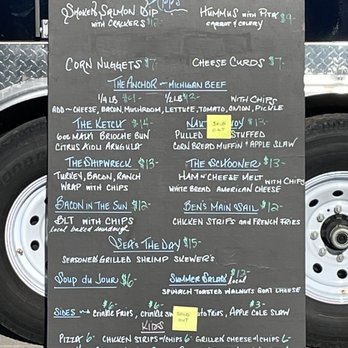 Smoked Salmon Dip $12-
with crackers
Hummus with Pita $9-
carrot & celery
Corn Nuggets $7
Cheese Curds $7-
The Anchor - Michigan Beef
1/4 lb 1/2 lb $12- with chips
Add - Cheese, Bacon, Mushroom, Lettuce, Tomato, Onion, Pickle
The Ketch $14-
Brioche Bun
Citrus Aioli Arugula
SOLD OUT
Pulled Stuffed
Corn Bread Muffin & Apple Slaw
The Shipwreck $13-
Turkey, Bacon, Ranch
Wrap with chips
The Schooner $13-
Ham n Cheese Melt with chips
White Bread American Cheese
Bacon in the Sun $12-
BLT with chips
Local baked
Ben's Main Sail $12-
Chicken Strips and French Fries
Sea's The Day $15-
Seasoned Grilled Shrimp Skewer's
Soup du Jour $6-
Summer Salad $13-
Local
Spinach Toasted Walnuts Goat Cheese
Sides - Crinkle Fries, $6- Fries, Apple Cole Slaw $3-
SOLD OUT
Kids
Pizza 6- Chicken Strips & Chips 6- Grilled Cheese & Chips 6-